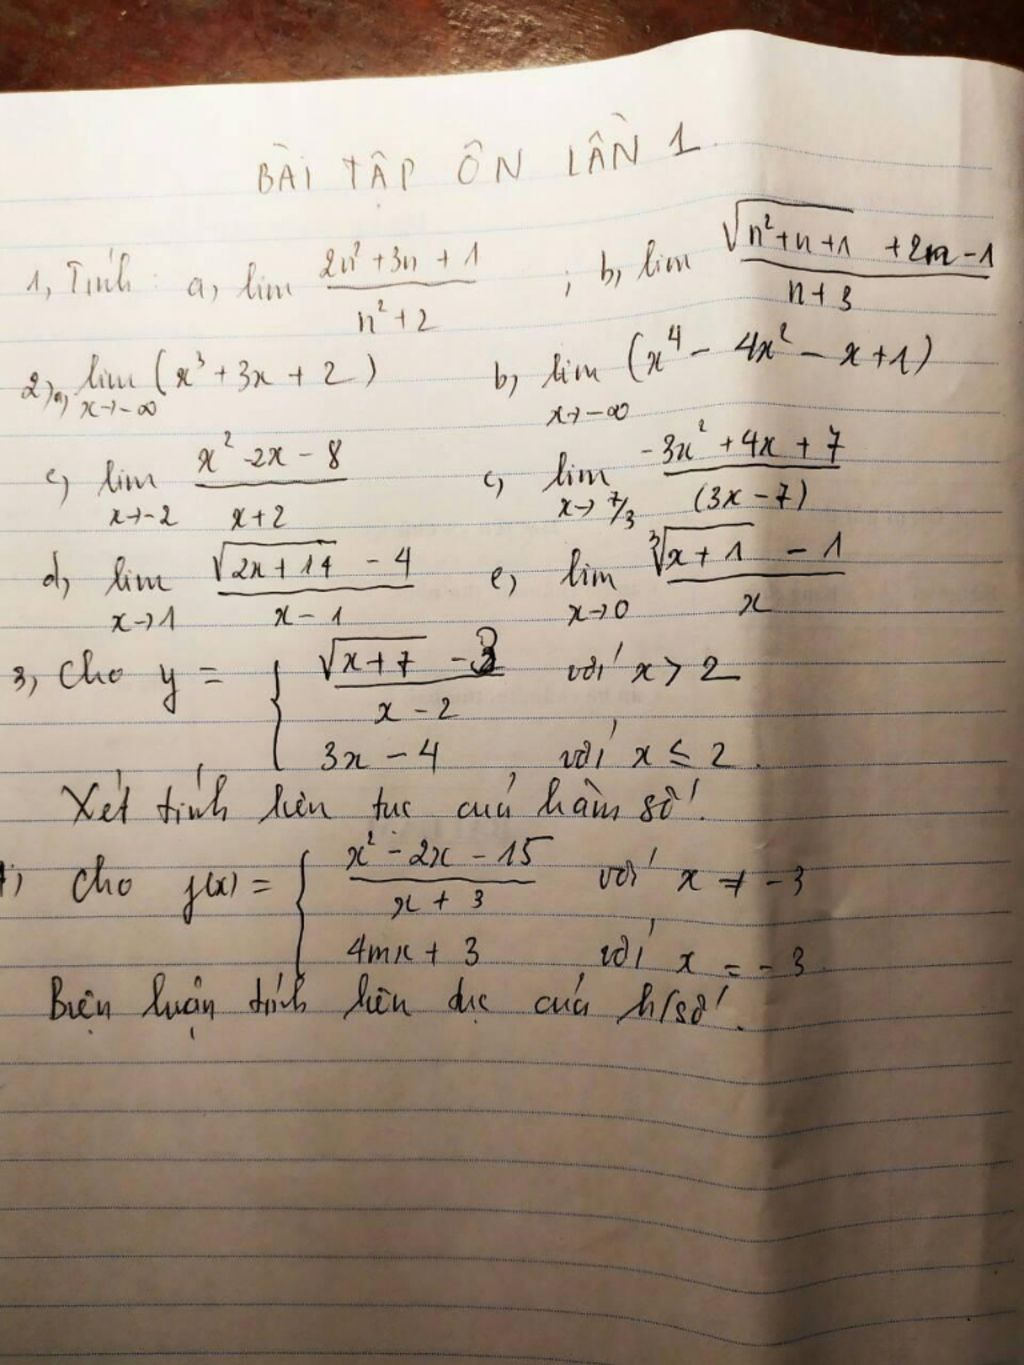 BÀI TẬP ÔN LẦN 1
1, Tính: a, lim (2n² + 3n + 1)/(n² + 2) ; b, lim (√(n² + n + 1) + 2n - 1)/(n + 3)
2, a, lim x→-∞ (x³ + 3x + 2) b, lim x→-∞ (x⁴ - 4x² - x + 1)
c, lim x→-2 (x² - 2x - 8)/(x + 2) c, lim x→7/3 (-3x² + 4x + 7)/(3x - 7)
d, lim x→1 (√(2x + 14) - 4)/(x - 1) e, lim x→0 (∛(x + 1) - 1)/x
3, Cho y = { (√(x + 7) - 3)/(x - 2) với x > 2
3x - 4 với x ≤ 2.
Xét tính liên tục của hàm số.
Cho f(x) = { (x² - 2x - 15)/(x + 3) với x ≠ -3
4mx + 3 với x = -3.
Biện luận tính liên tục của h/số.